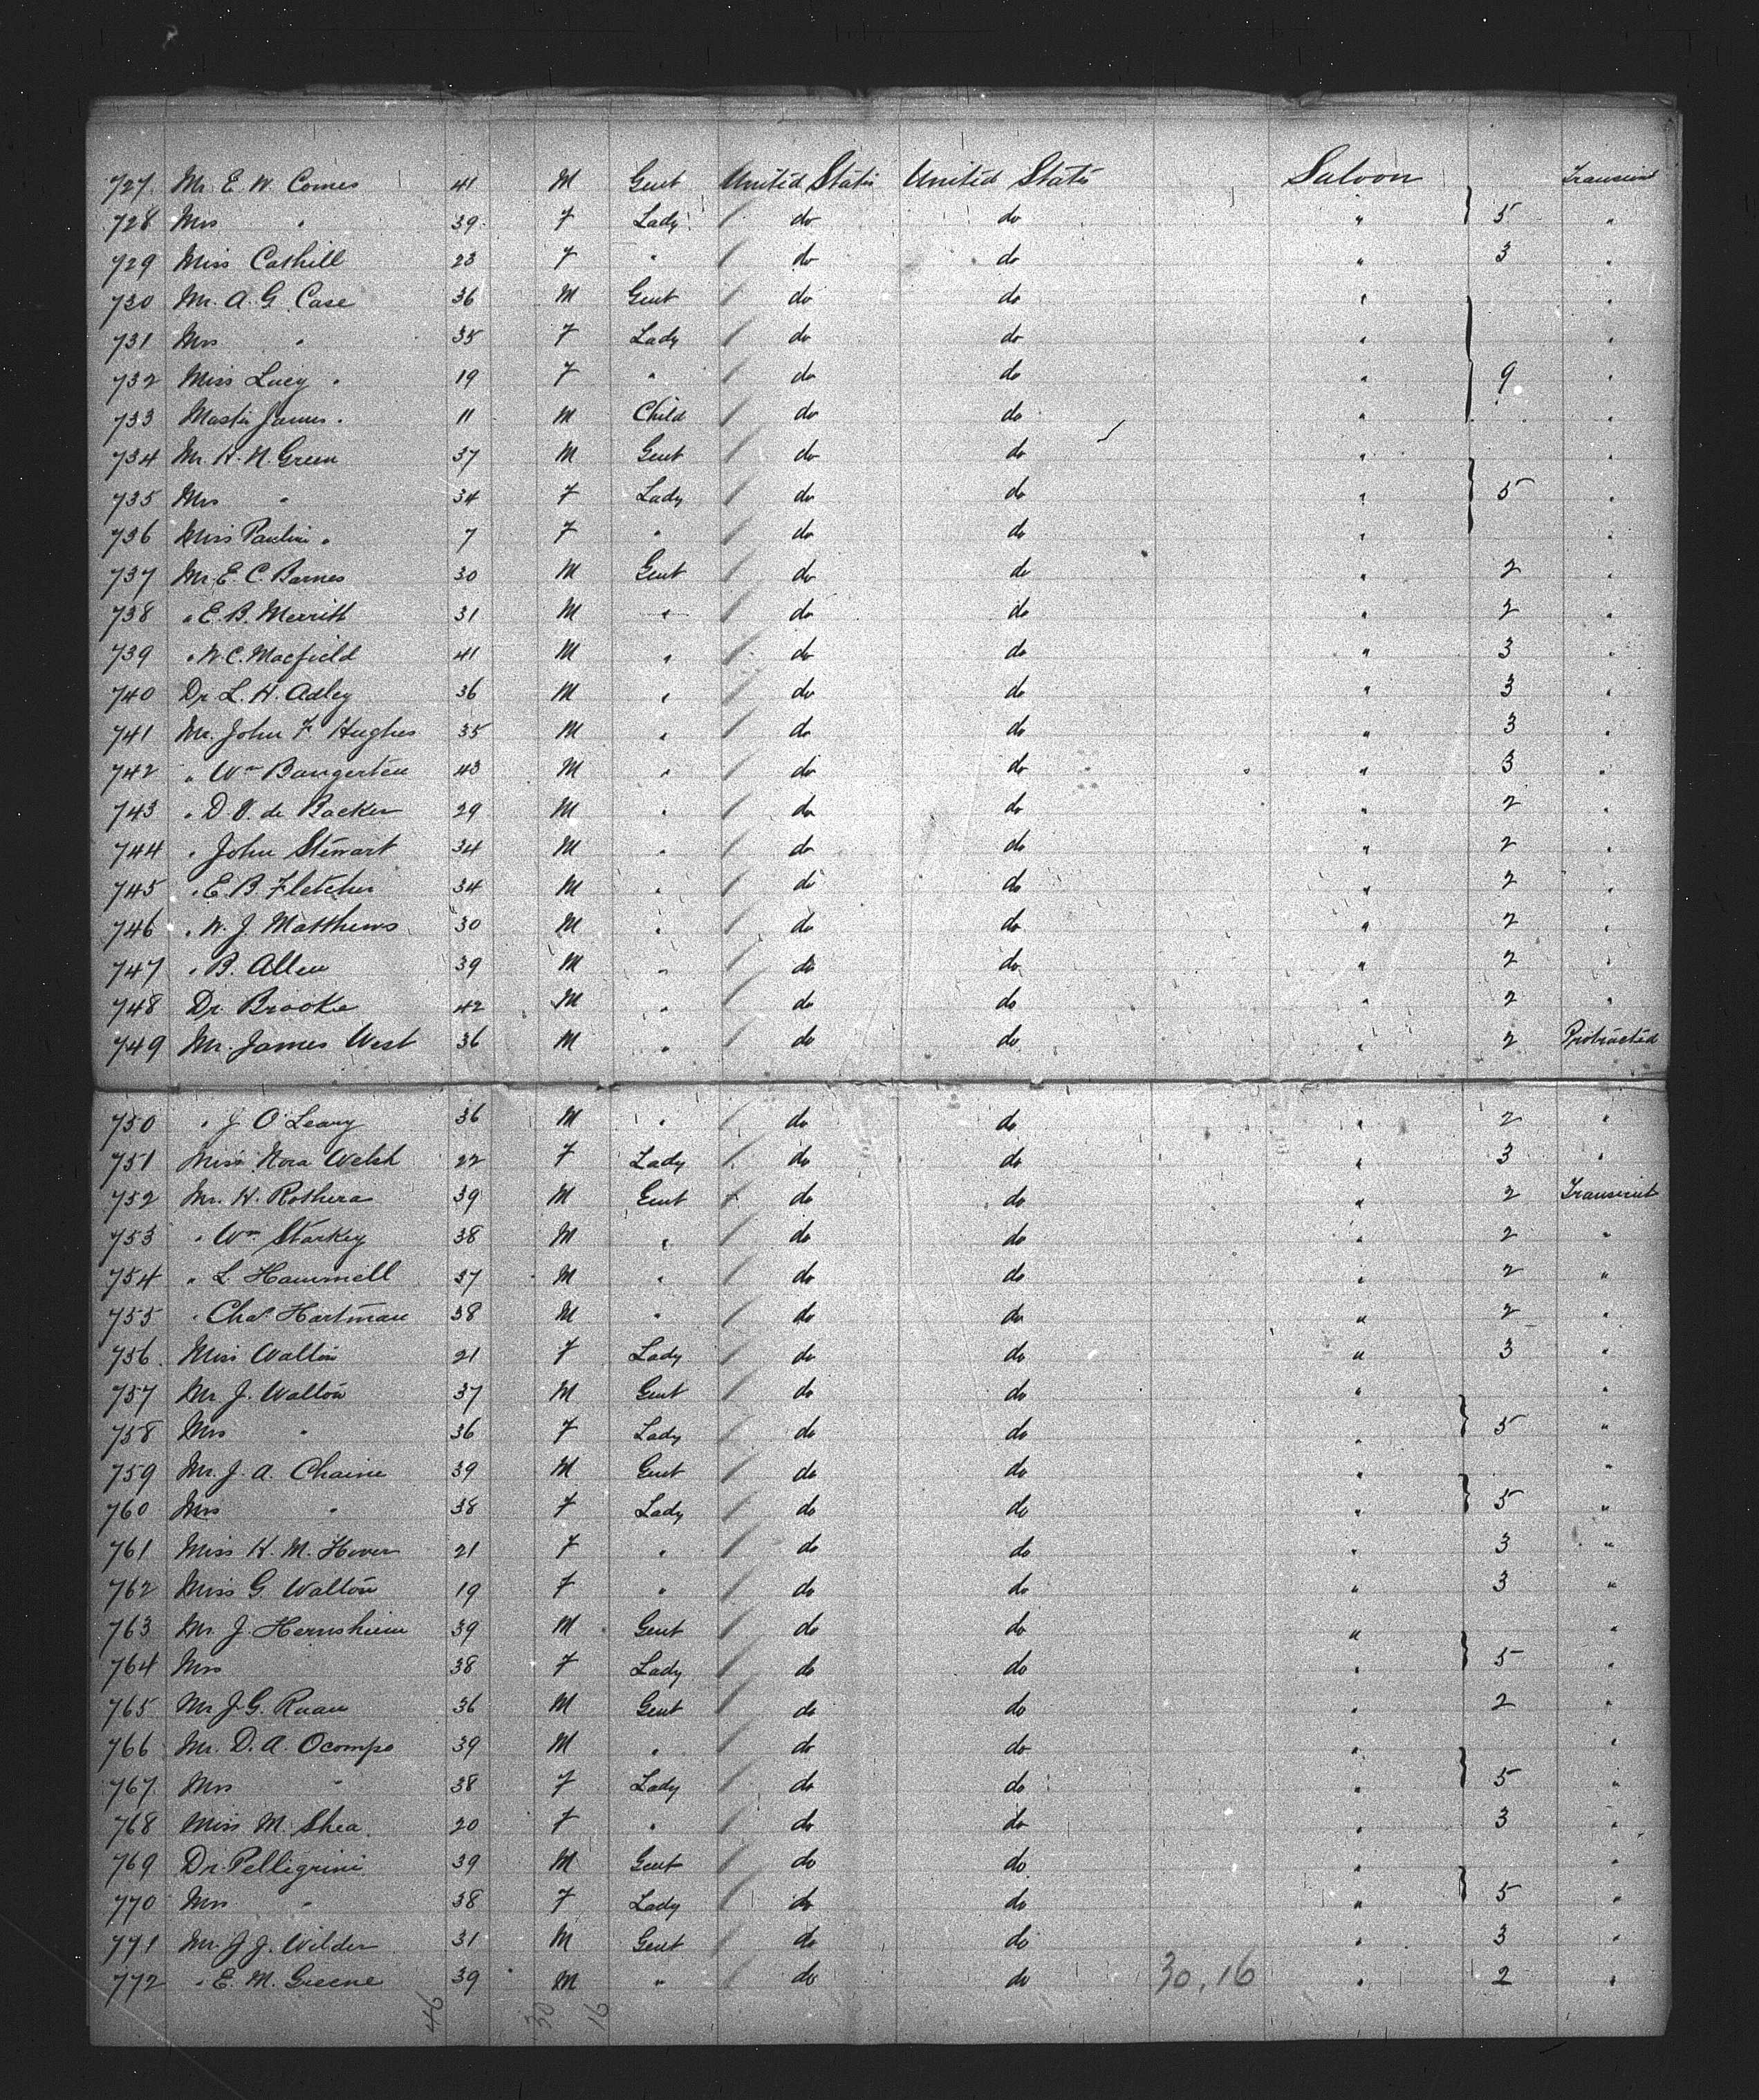 727. Mr. E. W. Comes 41 M Gent United States United States Saloon Transient
728 Mrs " 39 F Lady do do " 5 "
729 Miss Cathill 23 F " do do " 3 "
730 Mr. A. G. Case 36 M Gent do do " "
731 Mrs " 35 F Lady do do " "
732 Miss Lucy " 19 F " do do " 9 "
733 Master James " 11 M Child do do " "
734 Mr. H. N. Green 37 M Gent do do " "
735 Mrs " 34 F Lady do do " 5 "
736 Miss Paulin " 7 F " do do " "
737 Mr. E. C. Barnes 30 M Gent do do " 2 "
738 " E. B. Merritt 31 M " do do " 2 "
739 " W. C. Macfield 41 M " do do " 3 "
740 Dr L. H. Adley 36 M " do do " 3 "
741 Mr. John F. Hughes 35 M " do do " 3 "
742 " Wm Baugerten 43 M " do do " 3 "
743 " D. V. de Backer 29 M " do do " 2 "
744 " John Stewart 34 M " do do " 2 "
745 " E B Fletcher 34 M " do do " 2 "
746 " W. J Matthews 30 M " do do " 2 "
747 " B. Allen 39 M " do do " 2 "
748 Dr. Brooke 42 M " do do " 2 "
749 Mr. James West 36 M " do do " 2 Protracted
750 " J O'Leary 36 M " do do " 2 "
751 Miss Nora Welsh 22 F Lady do do " 3 "
752 Mr. H. Rothera 39 M Gent do do " 2 Transient
753 " Wm Starkey 38 M " do do " 2 "
754 " L. Hammell 37 M " do do " 2 "
755 " Chas Hartman 38 M " do do " 2 "
756. Miss Walton 21 F Lady do do " 3 "
757 Mr J. Walton 37 M Gent do do " "
758 Mrs " 36 F Lady do do " 5 "
759 Mr. J. A. Chaine 39 M Gent do do " "
760 Mrs " 38 F Lady do do " 5 "
761 Miss H. M. Hover 21 F " do do " 3 "
762 Miss G. Walton 19 F " do do " 3 "
763 Mr J. Hernsheim 39 M Gent do do " "
764 Mrs 38 F Lady do do " 5 "
765 Mr J. G. Ruan 36 M Gent do do " 2 "
766 Mr. D. A. Ocampo 39 M " do do " "
767. Mrs " 38 F Lady do do " 5 "
768 Miss M. Shea 20 F " do do " 3 "
769 Dr. Pelligrini 39 M Gent do do " "
770 Mrs " 38 F Lady do do " 5 "
771 Mr. J. J. Wilder 31 M Gent do do " 3 "
772 " E. M. Greene 39 M " do do 30.16 " 2 "
46 30 16